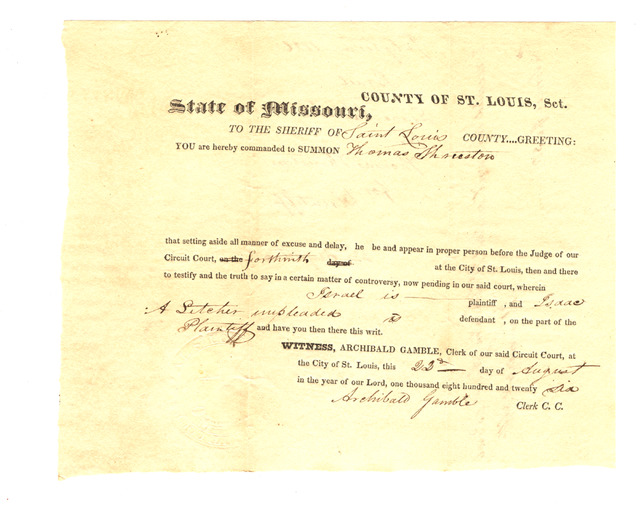 COUNTY OF ST. LOUIS, Sct.
State of Missouri,
TO THE SHERIFF OF Saint Louis COUNTY....GREETING:
YOU are hereby commanded to SUMMON Thomas Thruston
that setting aside all manner of excuse and delay, he be and appear in proper person before the Judge of our
Circuit Court, on the forthwith day of at the City of St. Louis, then and there
to testify and the truth to say in a certain matter of controversy, now pending in our said court, wherein
Israel is plaintiff , and Isaac
A Letcher impleaded is defendant , on the part of the
Plaintiff and have you then there this writ.
WITNESS, ARCHIBALD GAMBLE, Clerk of our said Circuit Court, at
the City of St. Louis, this 22d day of August
in the year of our Lord, one thousand eight hundred and twenty six
Archibald Gamble Clerk C. C.